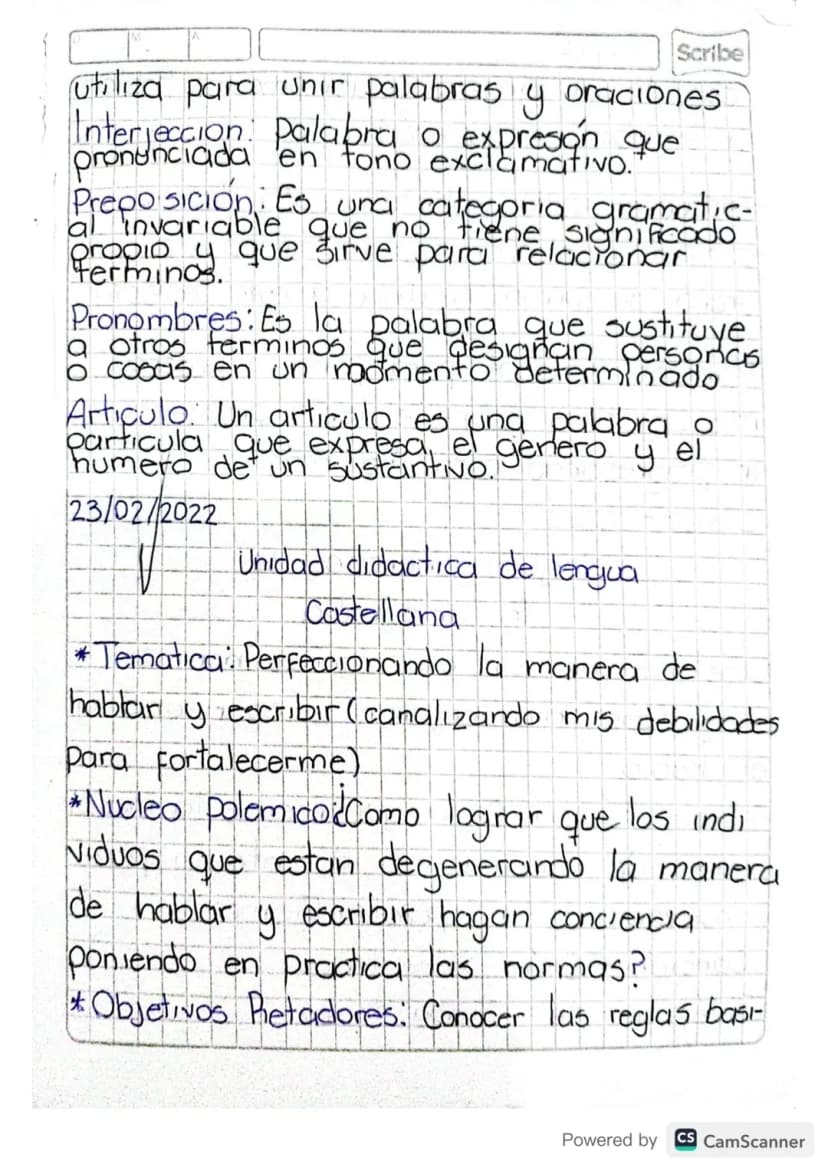 Scribe
utiliza para unir palabras y oraciones
Interjeccion: Palabra o expresión que
pronunciada en tono exclamativo.
Preposición: Es una categoria gramatic-
al invariable que no tiene significado
propio y que sirve para relacionar
terminos.
Pronombres: Es la palabra que sustituye
a otros terminos que designan personas
o cosas en un momento determinado
Articulo: Un articulo es una palabra o
particula que expresa el genero y el
numero de un sustantivo.
23/02/2022
Unidad didactica de lengua
Castellana
* Tematica: Perfeccionando la manera de
hablar y escribir (canalizando mis debilidades
para fortalecerme)
* Nucleo polemico: ¿Como lograr que los indi
viduos que estan degenerando la manera
de hablar y escribir hagan conciencia
poniendo en practica las normas?
* Objetivos Retadores: Conocer las reglas basi-
Powered by CS CamScanner